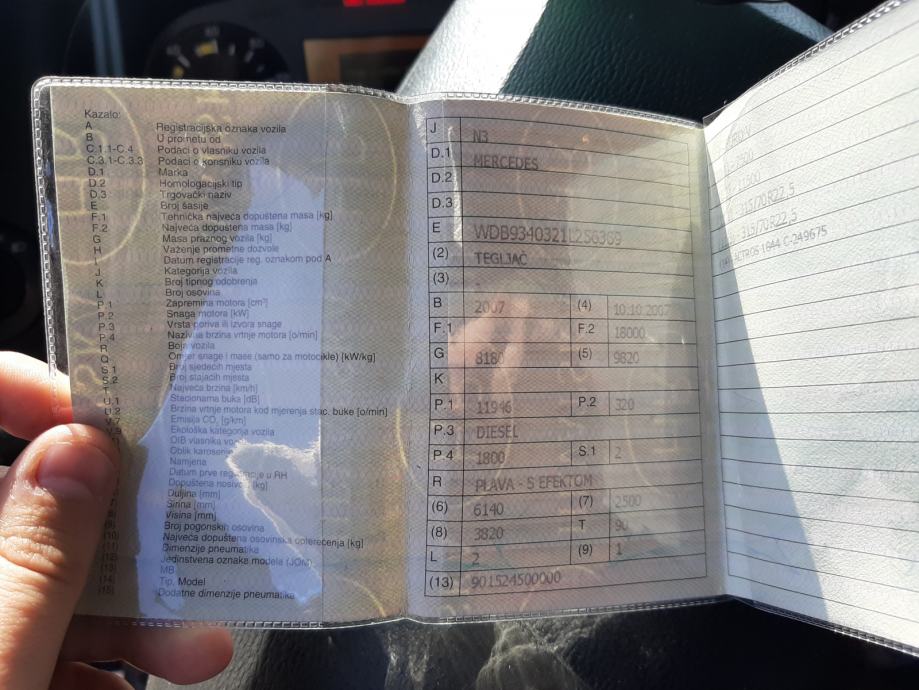 Kazalo:
A Registracijska oznaka vozila
B U prometu od
C.1.1-C.4 Podaci o vlasniku vozila
C.3.1-C.3.3 Podaci o korisniku vozila
D.1 Marka
D.2 Homologacijski tip
D.3 Trgovački naziv
E Broj šasije
F.1 Tehnička najveća dopuštena masa [kg]
F.2 Najveća dopuštena masa [kg]
G Masa praznog vozila [kg]
H Važenje prometne dozvole
I Datum registracije reg. oznakom pod A
J Kategorija vozila
K Broj tipnog odobrenja
L Broj osovina
P.1 Zapremina motora [cm³]
P.2 Snaga motora [kW]
P.3 Vrsta goriva ili izvora snage
P.4 Nazivna broj vrtnje motora [o/min]
R Boja vozila
Q Omjer snage i mase (samo za motocikle) [kW/kg]
S.1 Broj sjedećih mjesta
S.2 Broj stajaćih mjesta
T Najveća brzina [km/h]
U.1 Stacionarna buka [dB]
U.2 Brzina vrtnje motora kod mjerenja stac. buke [o/min]
V.7 Emisija CO₂ [g/km]
Ekološka kategorija vozila
OIB vlasnika
Oblik karoserije
Namjena
Datum prve registracije u RH
Dopuštena nosivost [kg]
Duljina [mm]
Širina [mm]
Visina [mm]
(9) Broj pogonskih osovina
(10) Najveća dopuštena osovinska opterećenja [kg]
(11) Dimenzije pneumatika
(12) Jedinstvena oznaka modela (JOM)
MB
(14) Tip, Model
(15) Dodatne dimenzije pneumatika
J N3
D.1 MERCEDES
D.2
D.3
E WDB9340321L256369
(2) TEGLJAČ
(3) -
B 2007 (4) 10.10.2007
F.1 F.2 18000
G 8180 (5) 9820
K
P.1 11946 P.2 320
P.3 DIESEL
P.4 1800 S.1 2
R PLAVA - S EFEKTOM
(6) 6140 (7) 2500
(8) 3820 T 90
L 2 (9) 1
(13) 901524500000
EURO V
7500
11500
315/70R22,5
315/70R22,5
(14) ACTROS 1844 C-249675